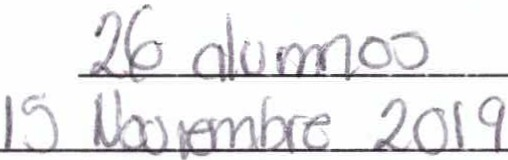 26 alumnos
15 Noviembre 2019